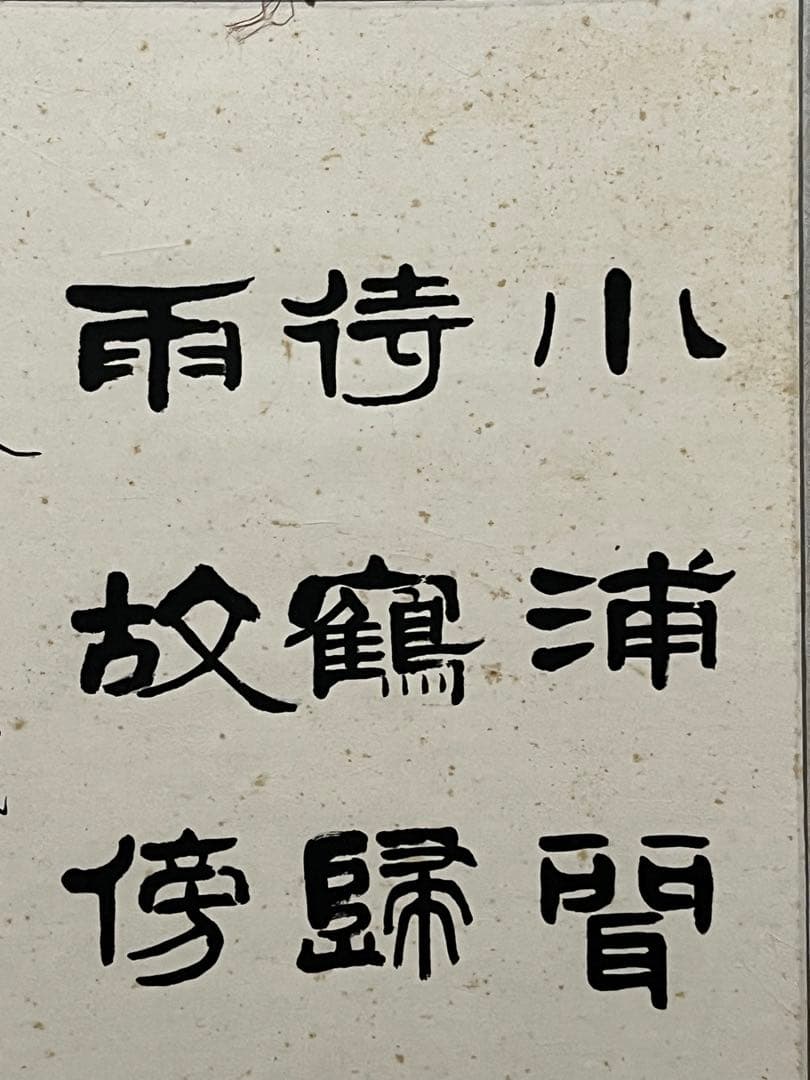 小浦聞
待鶴歸
雨故傍